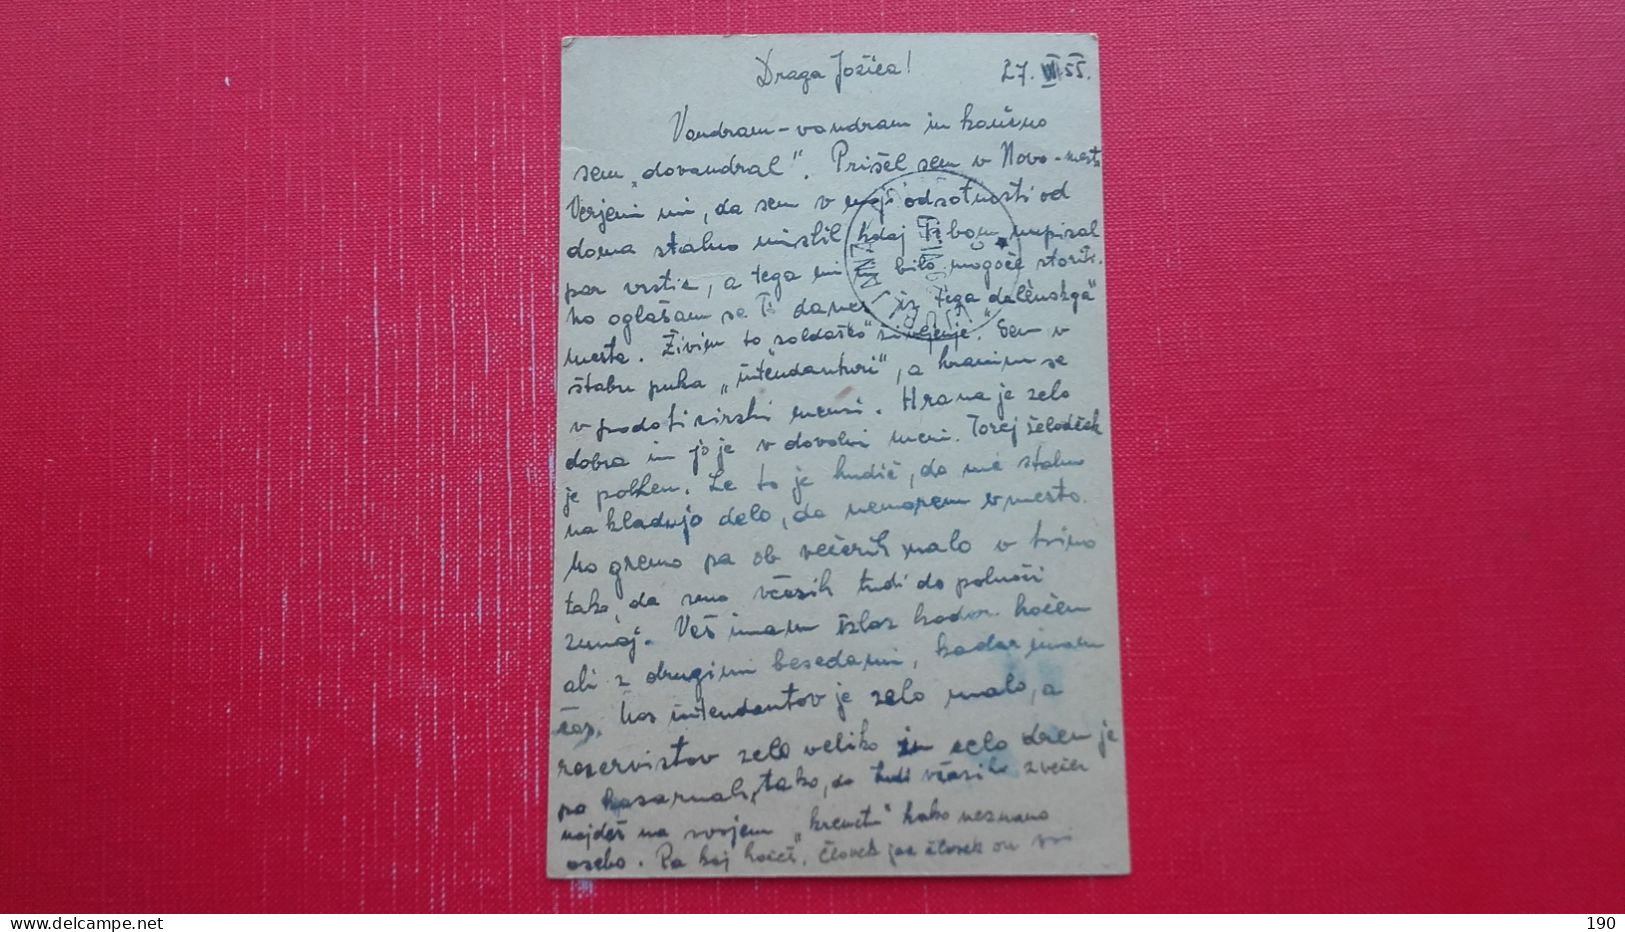 Draga Jožica! 27. VI. 55.
Vandram-vandram in končno
sem „dovandral". Prišel sem v Novo-mesto
Verjemi mi, da sem v moji odsotnosti od
doma stalno mislil kdaj Ti bom napisal
par vrstic, a tega mi ni bilo mogoče storiti.
No oglašam se Ti danes iz tega „dalčnskga"
mesta. Živim to „soldaško" življenje. Sem v
štabu puka „intendanturi", a hranim se
v podoficirski menzi. Hrana je zelo
dobra in jo je v dovolni meri. Torej želodček
je polhen. Le to je hudič, da me stalno
nakladujo delo, da nemorem v mesto.
No gremo pa ob večerih malo v
tako, da smo včasih tudi do polnoči
zunaj. Veš imam izlaz kadar hočem
ali z drugimi besedami, kadar imam
čas. Nas intendantov je zelo malo, a
rezervistov zelo veliko in zelo dren je
po kasarnah, tako, da tudi včasih zvečer
najdeš na svojem „krevetu" kako neznano
osebo. Pa kaj hočeš, človek je človek